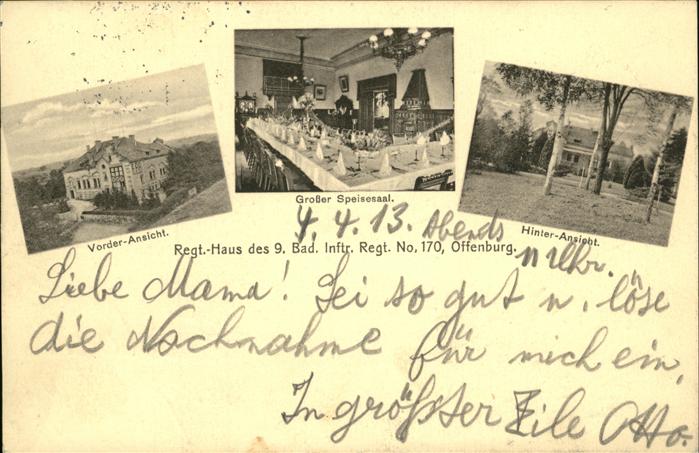 Großer Speisesaal.
Vorder-Ansicht.
Hinter-Ansicht.
Regt.-Haus des 9. Bad. Inftr. Regt. No. 170, Offenburg.
4. 4. 13. Abends
11 Uhr.
Liebe Mama! Sei so gut u. löse
die Nachnahme für mich ein,
In größter Eile Otto.